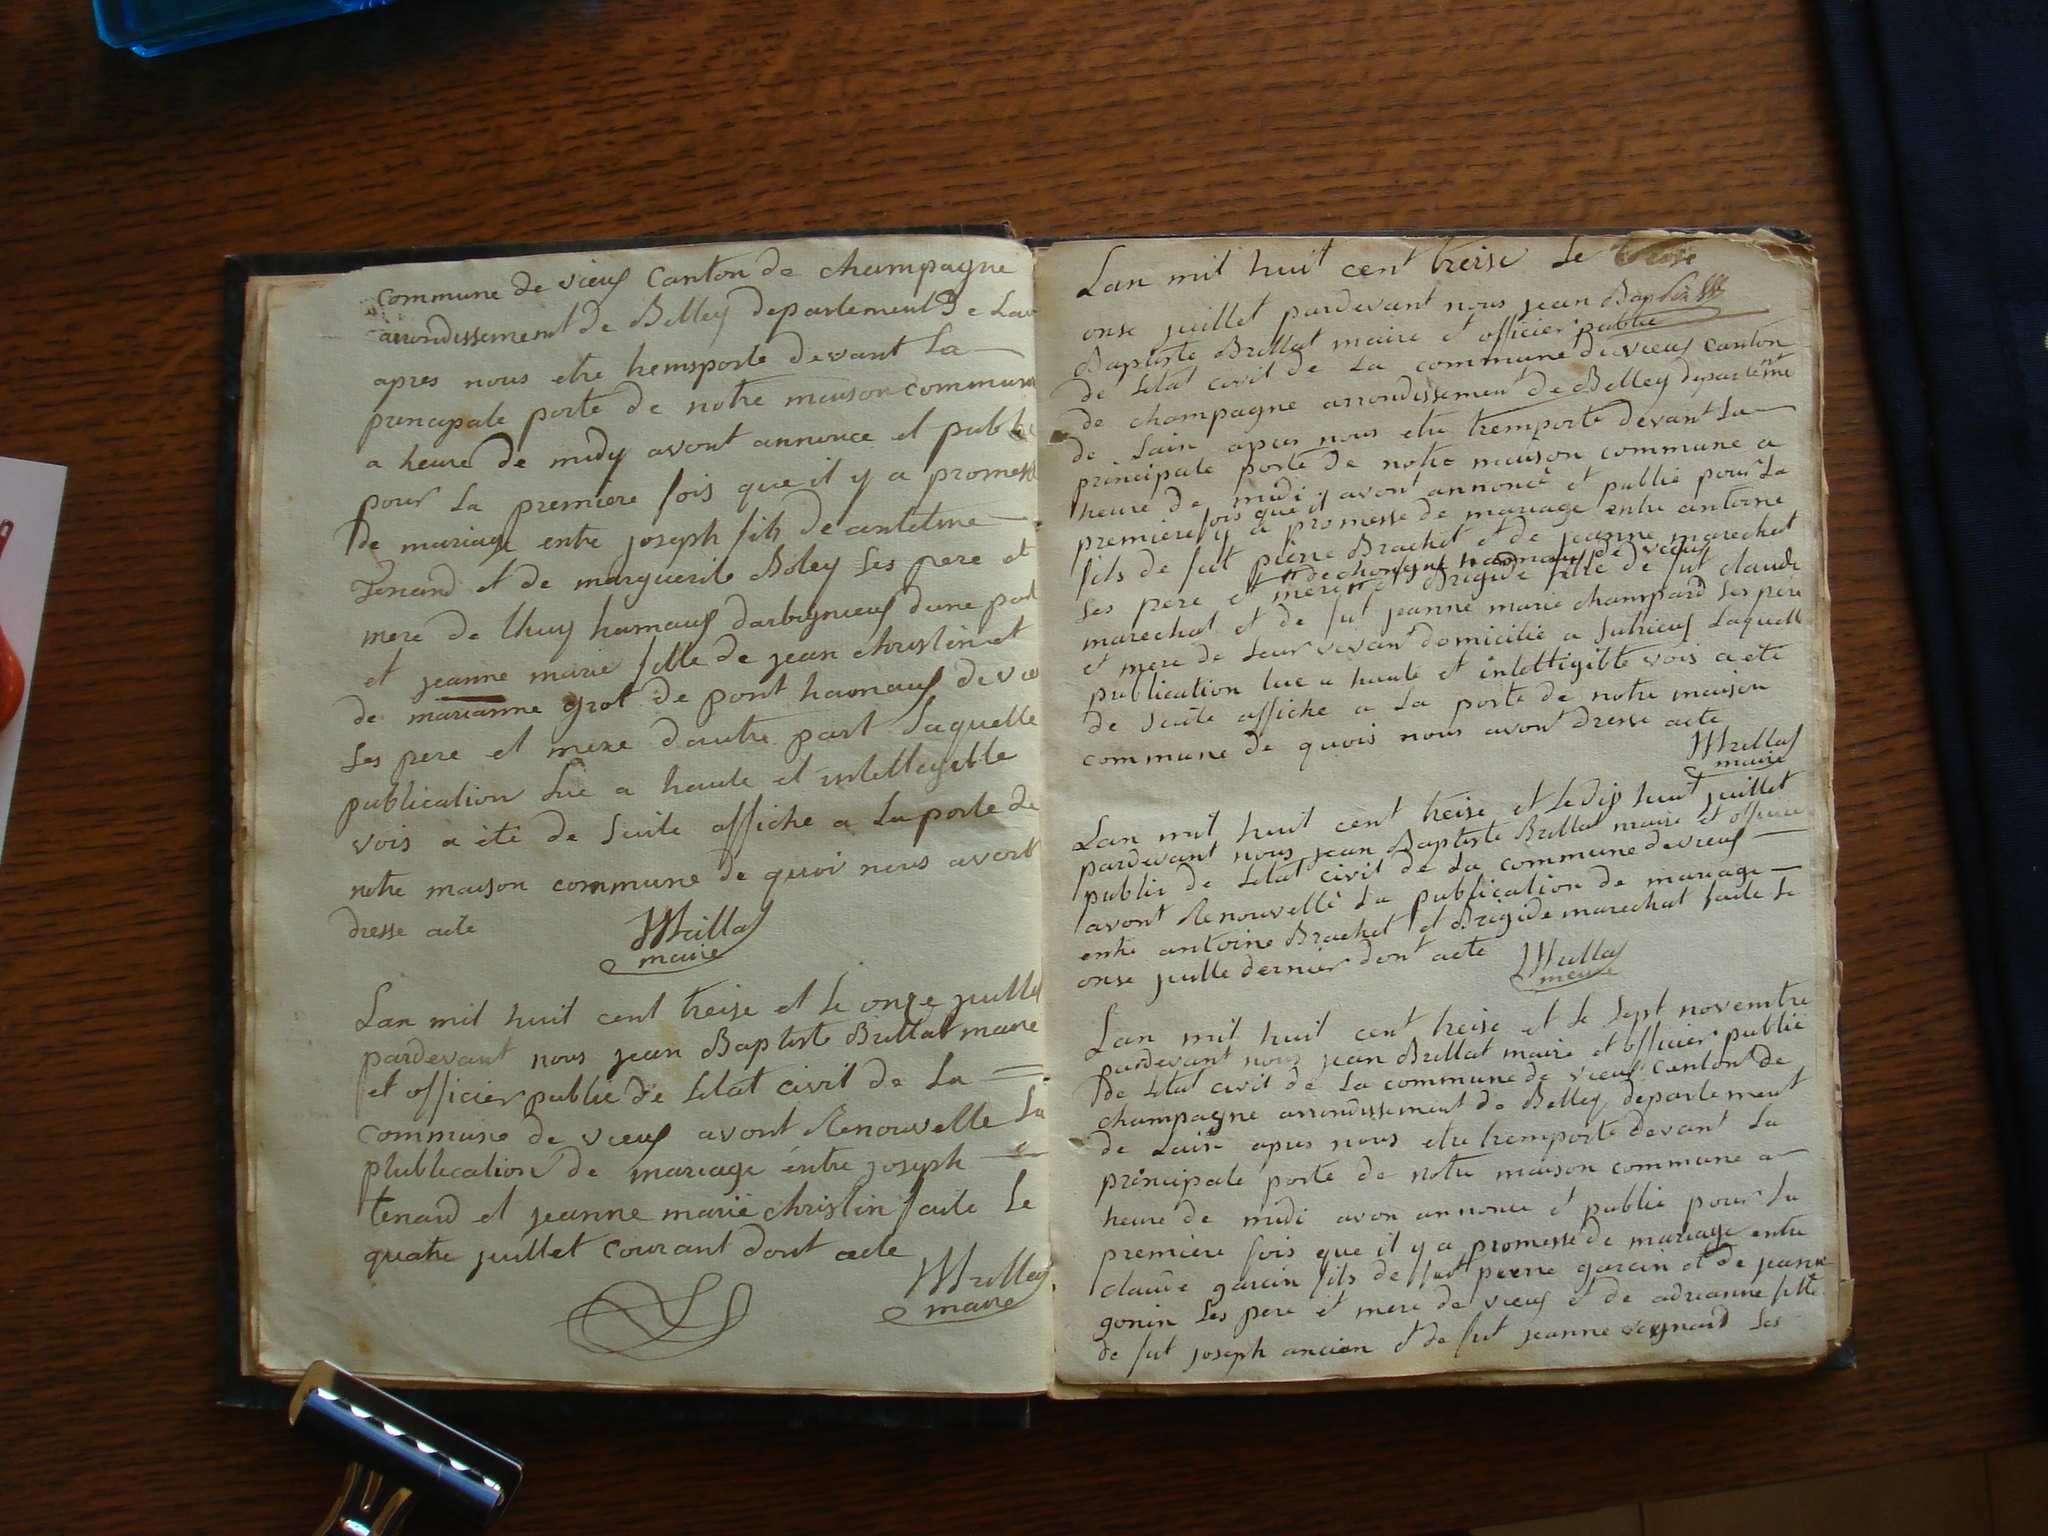 commune de vieux Canton de champagne
arrondissement de Belley departement de Lain
apres nous etre tremsporte devant La
principale porte de notre maison commune
a heure de midy avont annonce et publie
pour La premiere fois que il y a promesse
de mariage entre joseph fils de antelme
Tenard et de marguerite Boley Les pere et
mere de thuy hamaux darbignieux dune part
et jeanne marie fille de jean christin et
de marianne grot de pont hamaux de vieux
Les pere et mere dautre part Laquelle
publication Lue a haute et intellegible
vois a ete de Suite affiche a La porte de
notre maison commune de quoi nous avont
dresse acte
Brillat
maire
Lan mil huit cent treise et le onze juillet
pardevant nous jean Baptiste Brillat maire
et officier public de letat civil de La
commune de vieux avont Renouvelle La
plublication de mariage entre joseph
tenard et jeanne marie christin faite Le
quatre juillet Courant dont acte
Brillat
maire
Lan mil huit cent treise Le
onse juillet pardevant nous jean
Baptiste Brillat maire et officier public
de letat civil de La commune de vieux canton
de champagne arrondissement de Belley departemt
de Lain apres nous etre tremporte devant La
principale porte de notre maison commune a
heure de midi avont annoncé et publie pour La
premiere fois que il y a promesse de mariage entre antoine
fils de fut pierre Brachet et de jeanne marechet
hamaux de vieux
Les pere et mere et Brigide fille de fut claude
marechat et de fut jeanne marie champard Les pere
et mere de Leur vivant domicilie a Sutrieux Laquelle
publication lue a haute et intelligible vois a ete
de Suite affiche a La porte de notre maison
commune de quois nous avont dresse acte
Brillat
maire
Lan mil huit cent treise et Le dix huit juillet
pardevant nous jean Baptiste Brillat maire et officier
public de letat civil de La commune de vieux
avont Renouvellé La publication de mariage
entre antoine Brachet et Brigide marechat faite Le
onse juille dernier dont acte
Brillat
maire
Lan mil huit cent treise et le Sept novembre
pardevant nous jean Brillat maire et officier public
de letat civil de La commune de vieux Canton de
champagne arrondissement de Belley departement
de Lain apres nous etre tremporte devant La
principale porte de notre maison commune a
heure de midi avon annonce et publie pour La
premiere fois que il y a promesse de mariage entre
claude garcin fils de fut pierre garcin et de jeanne
gonin Les pere et mere de vieux et de adrianne fille
de fut joseph ancian et de fut jeanne Les